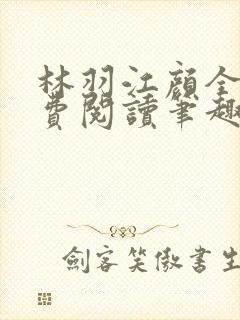 林羽江顏全
費閱讀筆趣
劍客笑傲書生